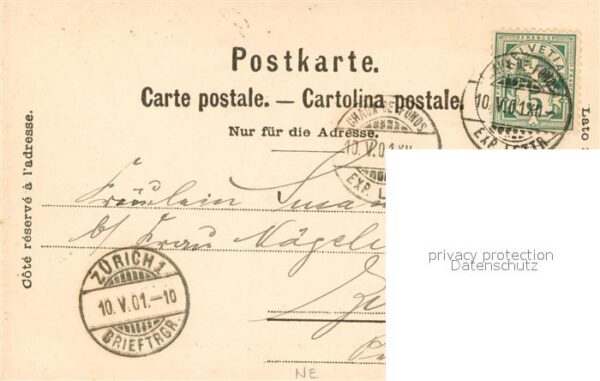 Postkarte.
Carte postale. — Cartolina postale.
Nur für die Adresse.
Côté réservé à l'adresse.
Lato
FRANCO
HELVETIA
10.VI.01.XI
EXP. LETTR.
CHAUX-DE-FONDS
10.V.01.XII
EXP. L
Fräulein Susan
b/ Frau Nägeli
ZÜRICH 1
10.V.01.-10
BRIEFTRGR.
NE
privacy protection
Datenschutz